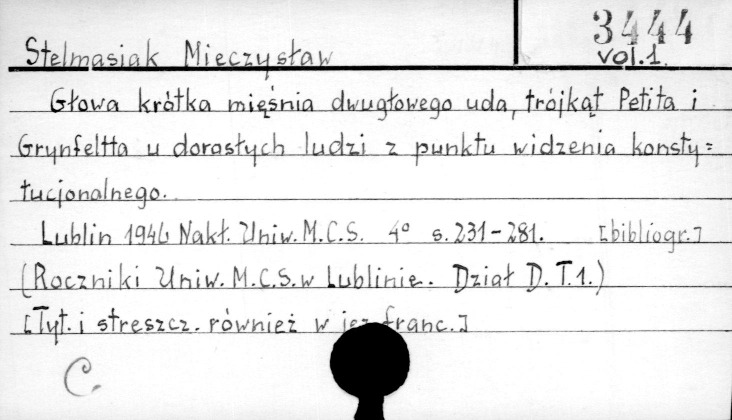 3444
Stelmasiak Mieczysław vol.1.
Głowa krótka mięśnia dwugłowego uda, trójkąt Petita i
Grynfeltta u dorosłych ludzi z punktu widzenia konsty=
tucjonalnego.
Lublin 1946 Nakł. Uniw. M.C.S. 4° s. 231-281. [bibliogr.]
(Roczniki Uniw. M.C.S. w Lublinie. Dział D. T.1.)
[Tyt. i streszcz. również w jęz. franc.]
C.